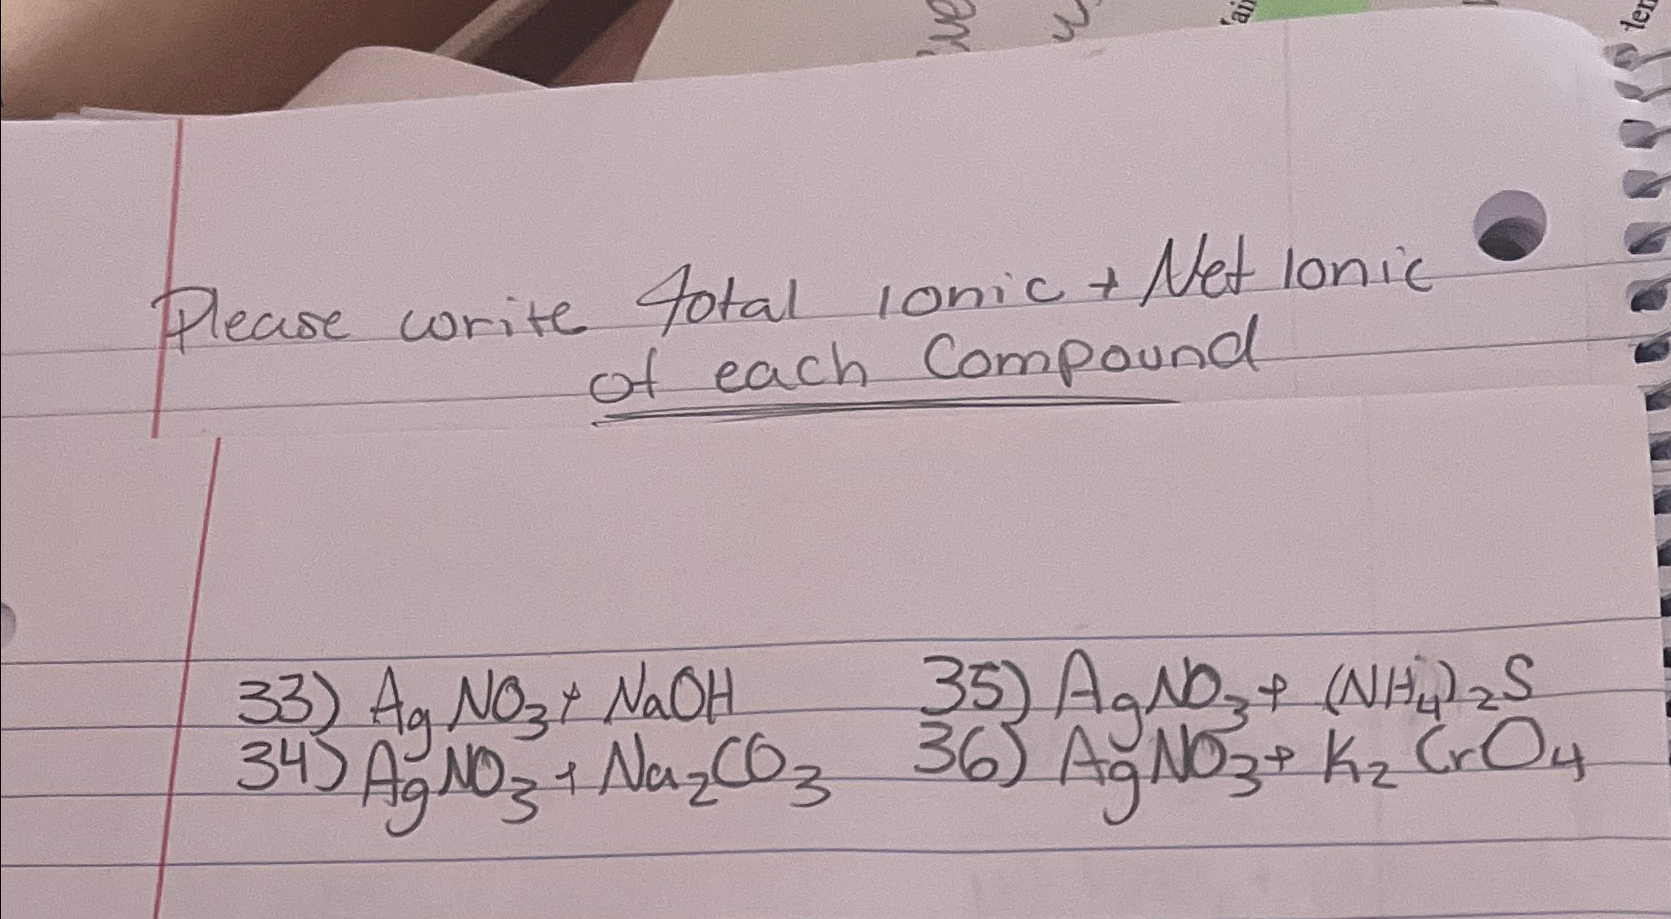 Please write total ionic + Net Ionic
of each Compound
33) AgNO₃ + NaOH
34) AgNO₃ + Na₂CO₃
35) AgNO₃ + (NH₄)₂S
36) AgNO₃ + K₂CrO₄